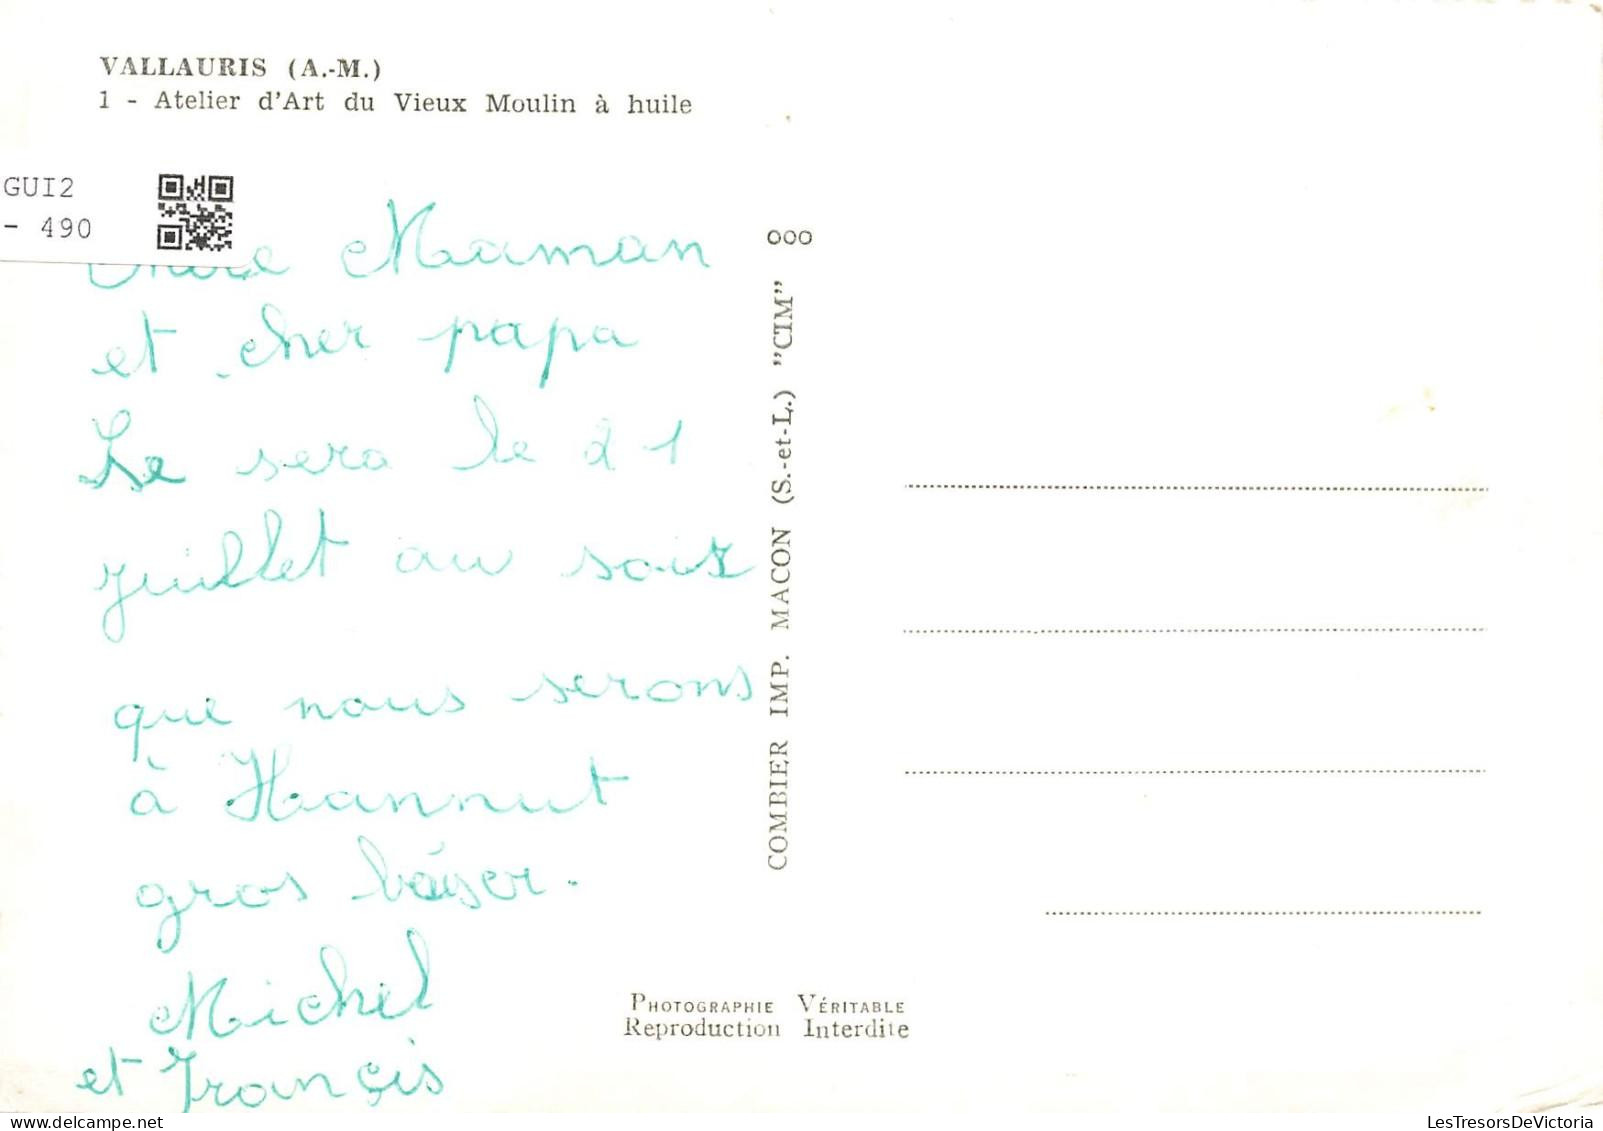 VALLAURIS (A.-M.)
1 - Atelier d'Art du Vieux Moulin à huile
GUI2
- 490
Maman
et cher papa
Se sera le 21
juillet au soir
que nous serons
à Hannut
gros báiser.
Michel
et François
ooo
COMBIER IMP. MACON (S.-et-L.) "CIM"
PHOTOGRAPHIE VÉRITABLE
Reproduction Interdite
LesTresorsDeVictoria